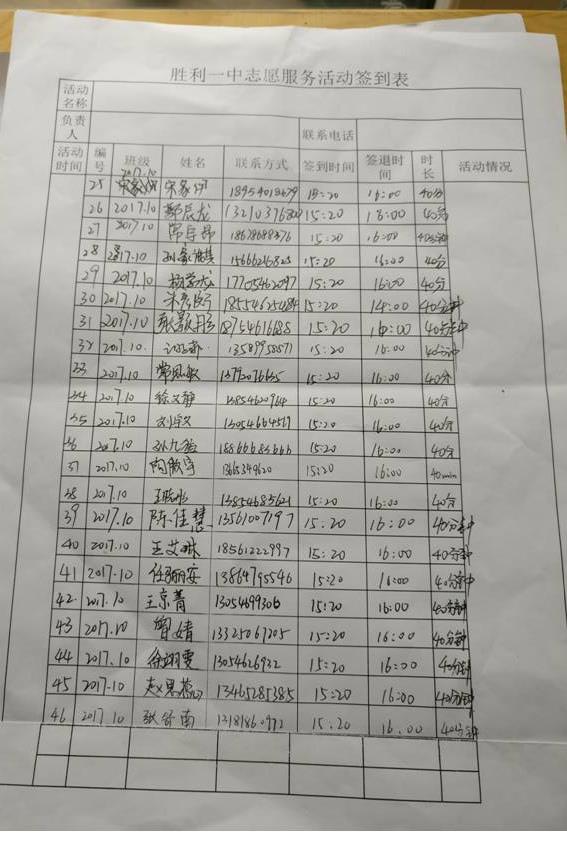 胜利一中志愿服务活动签到表
活动名称
负责人 联系电话
活动时间 编号 班级 姓名 联系方式 签到时间 签退时间 时长 活动情况
25 2017.10 宋家 15:20 16:00 40分
26 2017.10 辰龙 15:20 16:00 40分
27 2017.10 18678688376 15:20 16:00 40分钟
28 15666216825 15:20 16:00 40分
29 2017.10 杨学龙 17705462097 15:20 16:00 40分
30 2017.10 18554625084 15:20 14:00 40分钟
31 2017.10 耿影彤 18754616188 15:20 16:00 40分钟
32 2017.10. 13589958571 15:20 16:00 40分钟
33 2017.10 常思敏 15:20 16:00 40分
34 2017.10 徐文静 13854620964 15:20 16:00 40分
35 2017.10 13054664517 15:20 16:00 40分
36 2017.10 孙九 15:20 16:00 40分
37 2017.10 13665349620 15:20 16:00 40min
38 2017.10 13854685621 15:20 16:00 40分
39 2017.10 陈佳慧 13561007197 15:20 16:00 40分钟
40 2017.10 王艾琳 18561222997 15:20 16:00 40分钟
41 2017.10 任丽安 13864795546 15:20 16:00 40分钟
42. 2017.10 王京菁 13054699306 15:20 16:00 40分钟
43 2017.10 曾婧 13325067205 15:20 16:00 40分钟
44 2017.10 徐翊雯 13054626932 15:20 16:00 40分钟
45 2017.10 赵思蕊 13465285385 15:20 16:00 40分钟
46 2017.10 张舒南 13181860972 15:20 16:00 40分钟